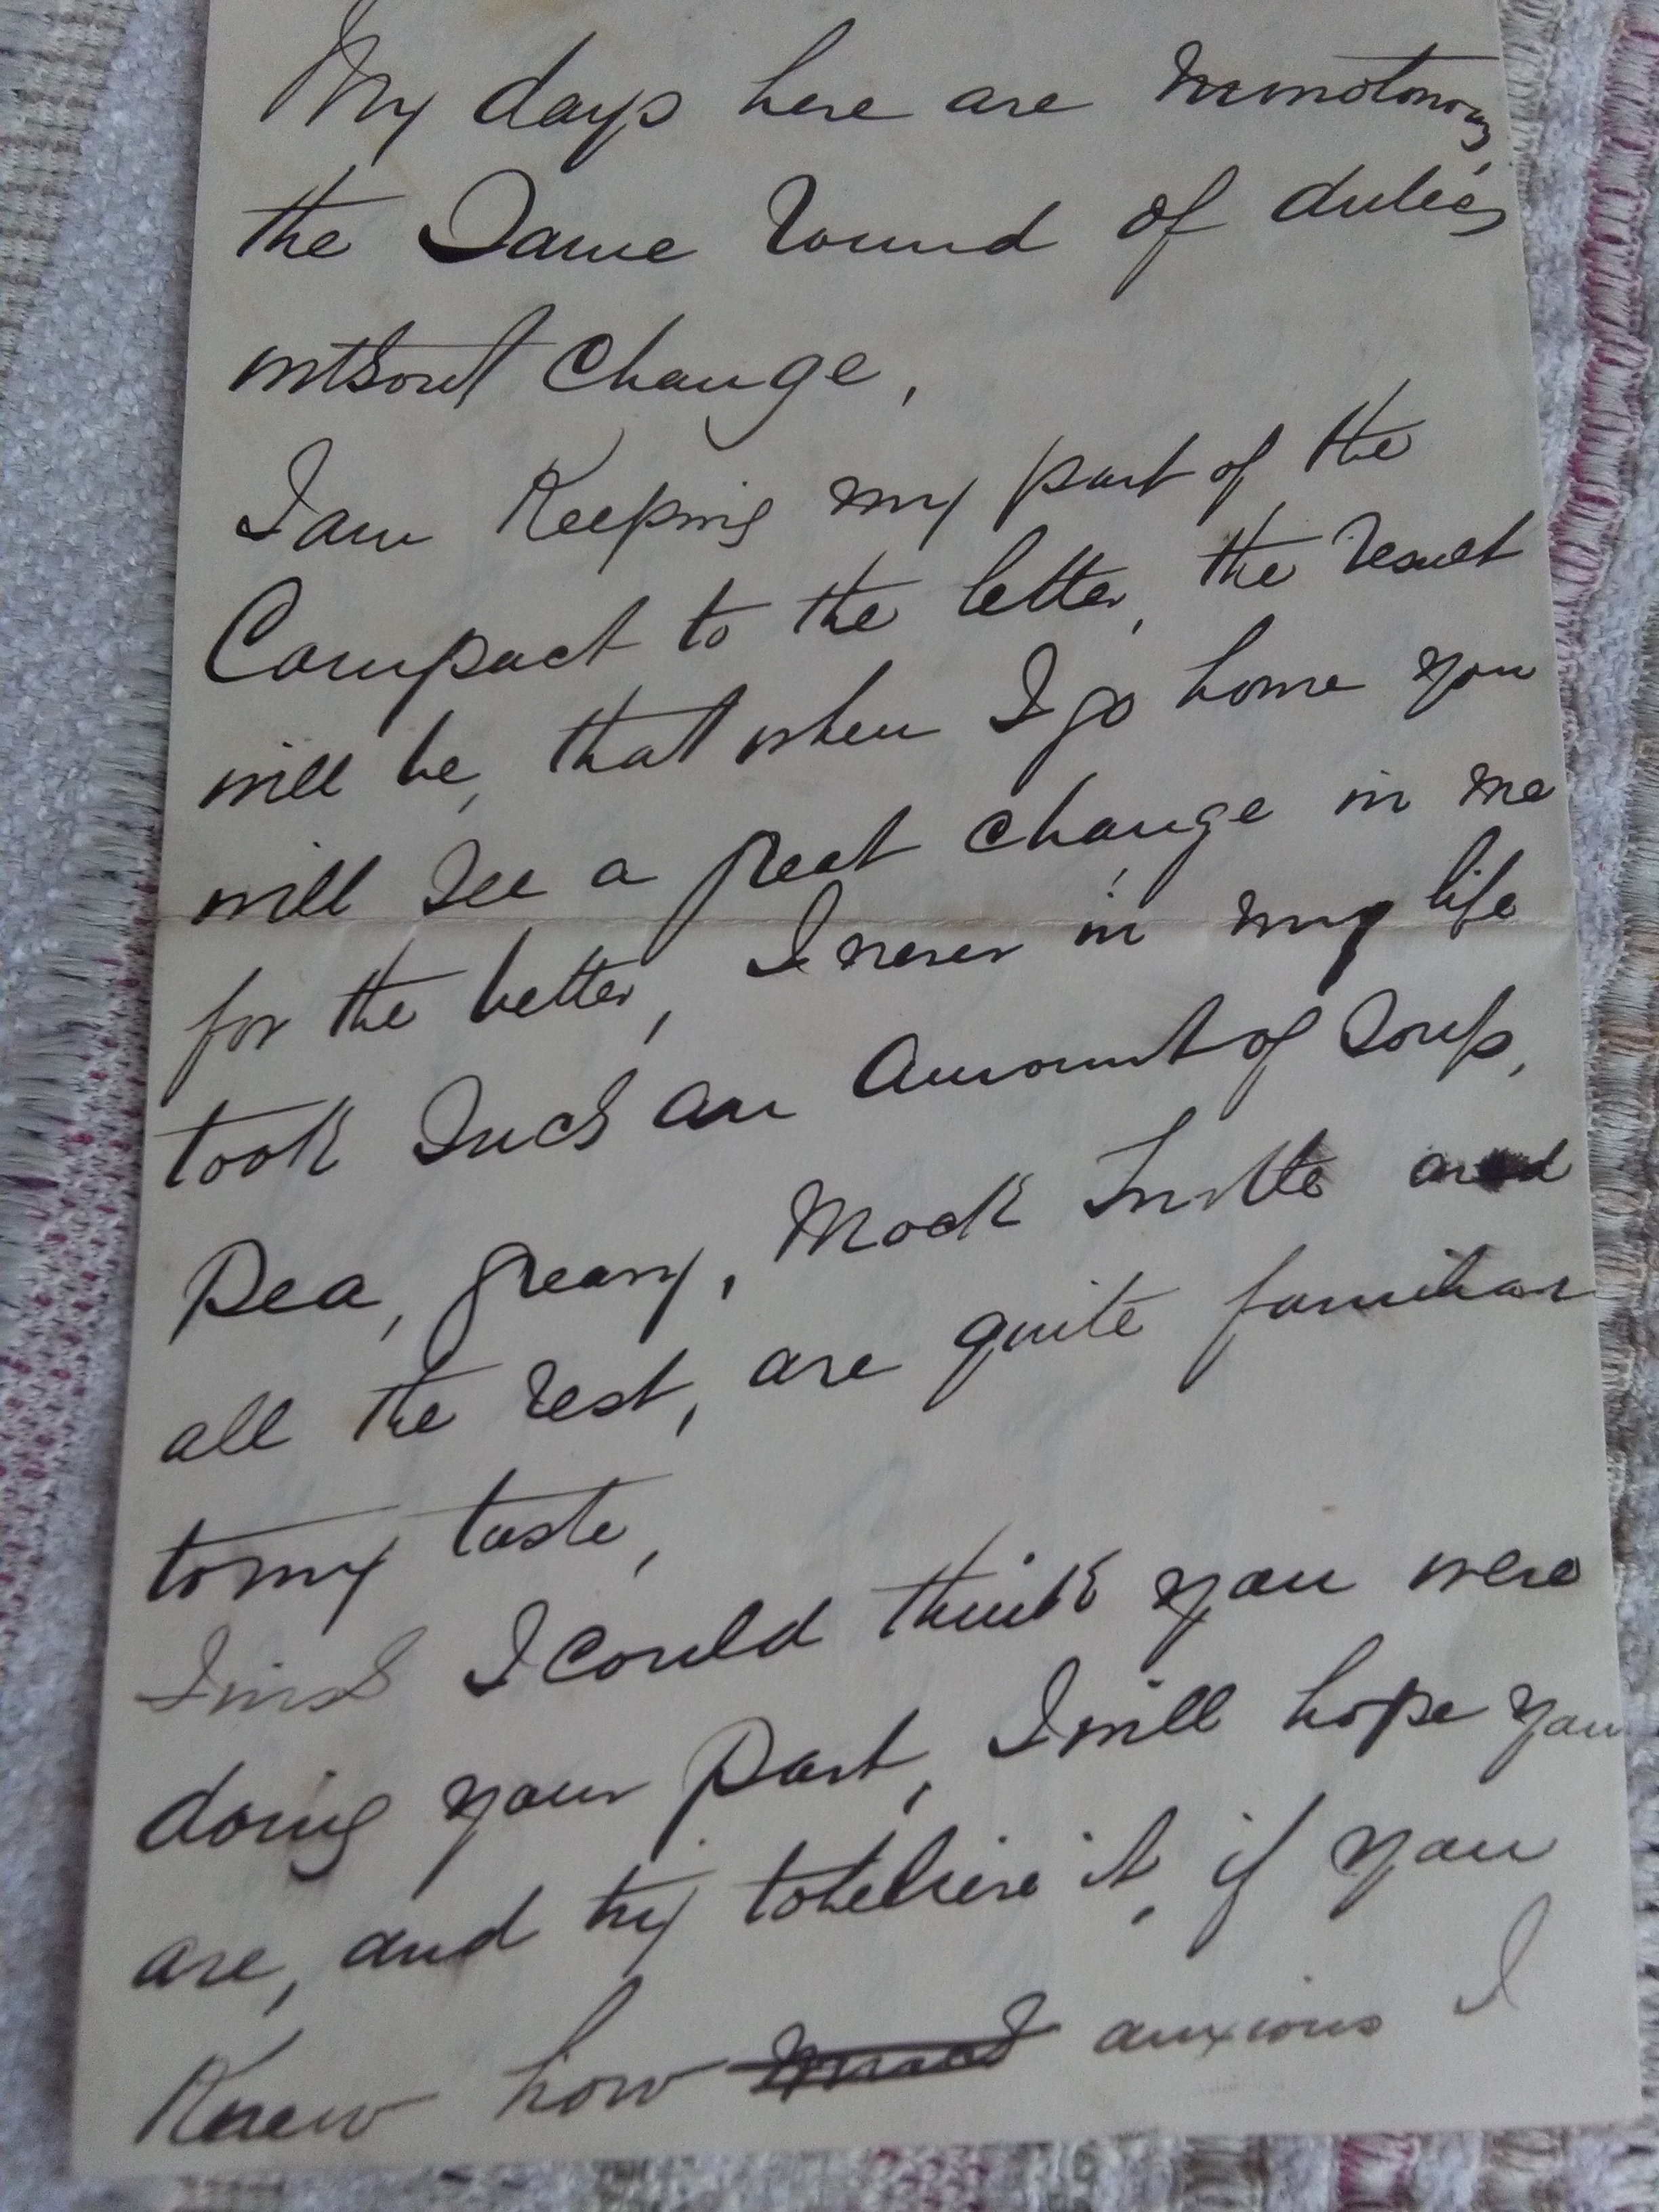 My days here are monotonous,
the Same round of duties
without Change,
I am Keeping my part of the
Compact to the letter, the result
will be, that when I go home you
will See a great change in me
for the better, I never in my life
took Such an Amount of Soup,
Pea, greavy, Mock Turtle and
all the rest, are quite familiar
to my taste,
I wish I could think you were
doing your Part, I will hope you
are, and try to believe it, if you
Knew how anxious I